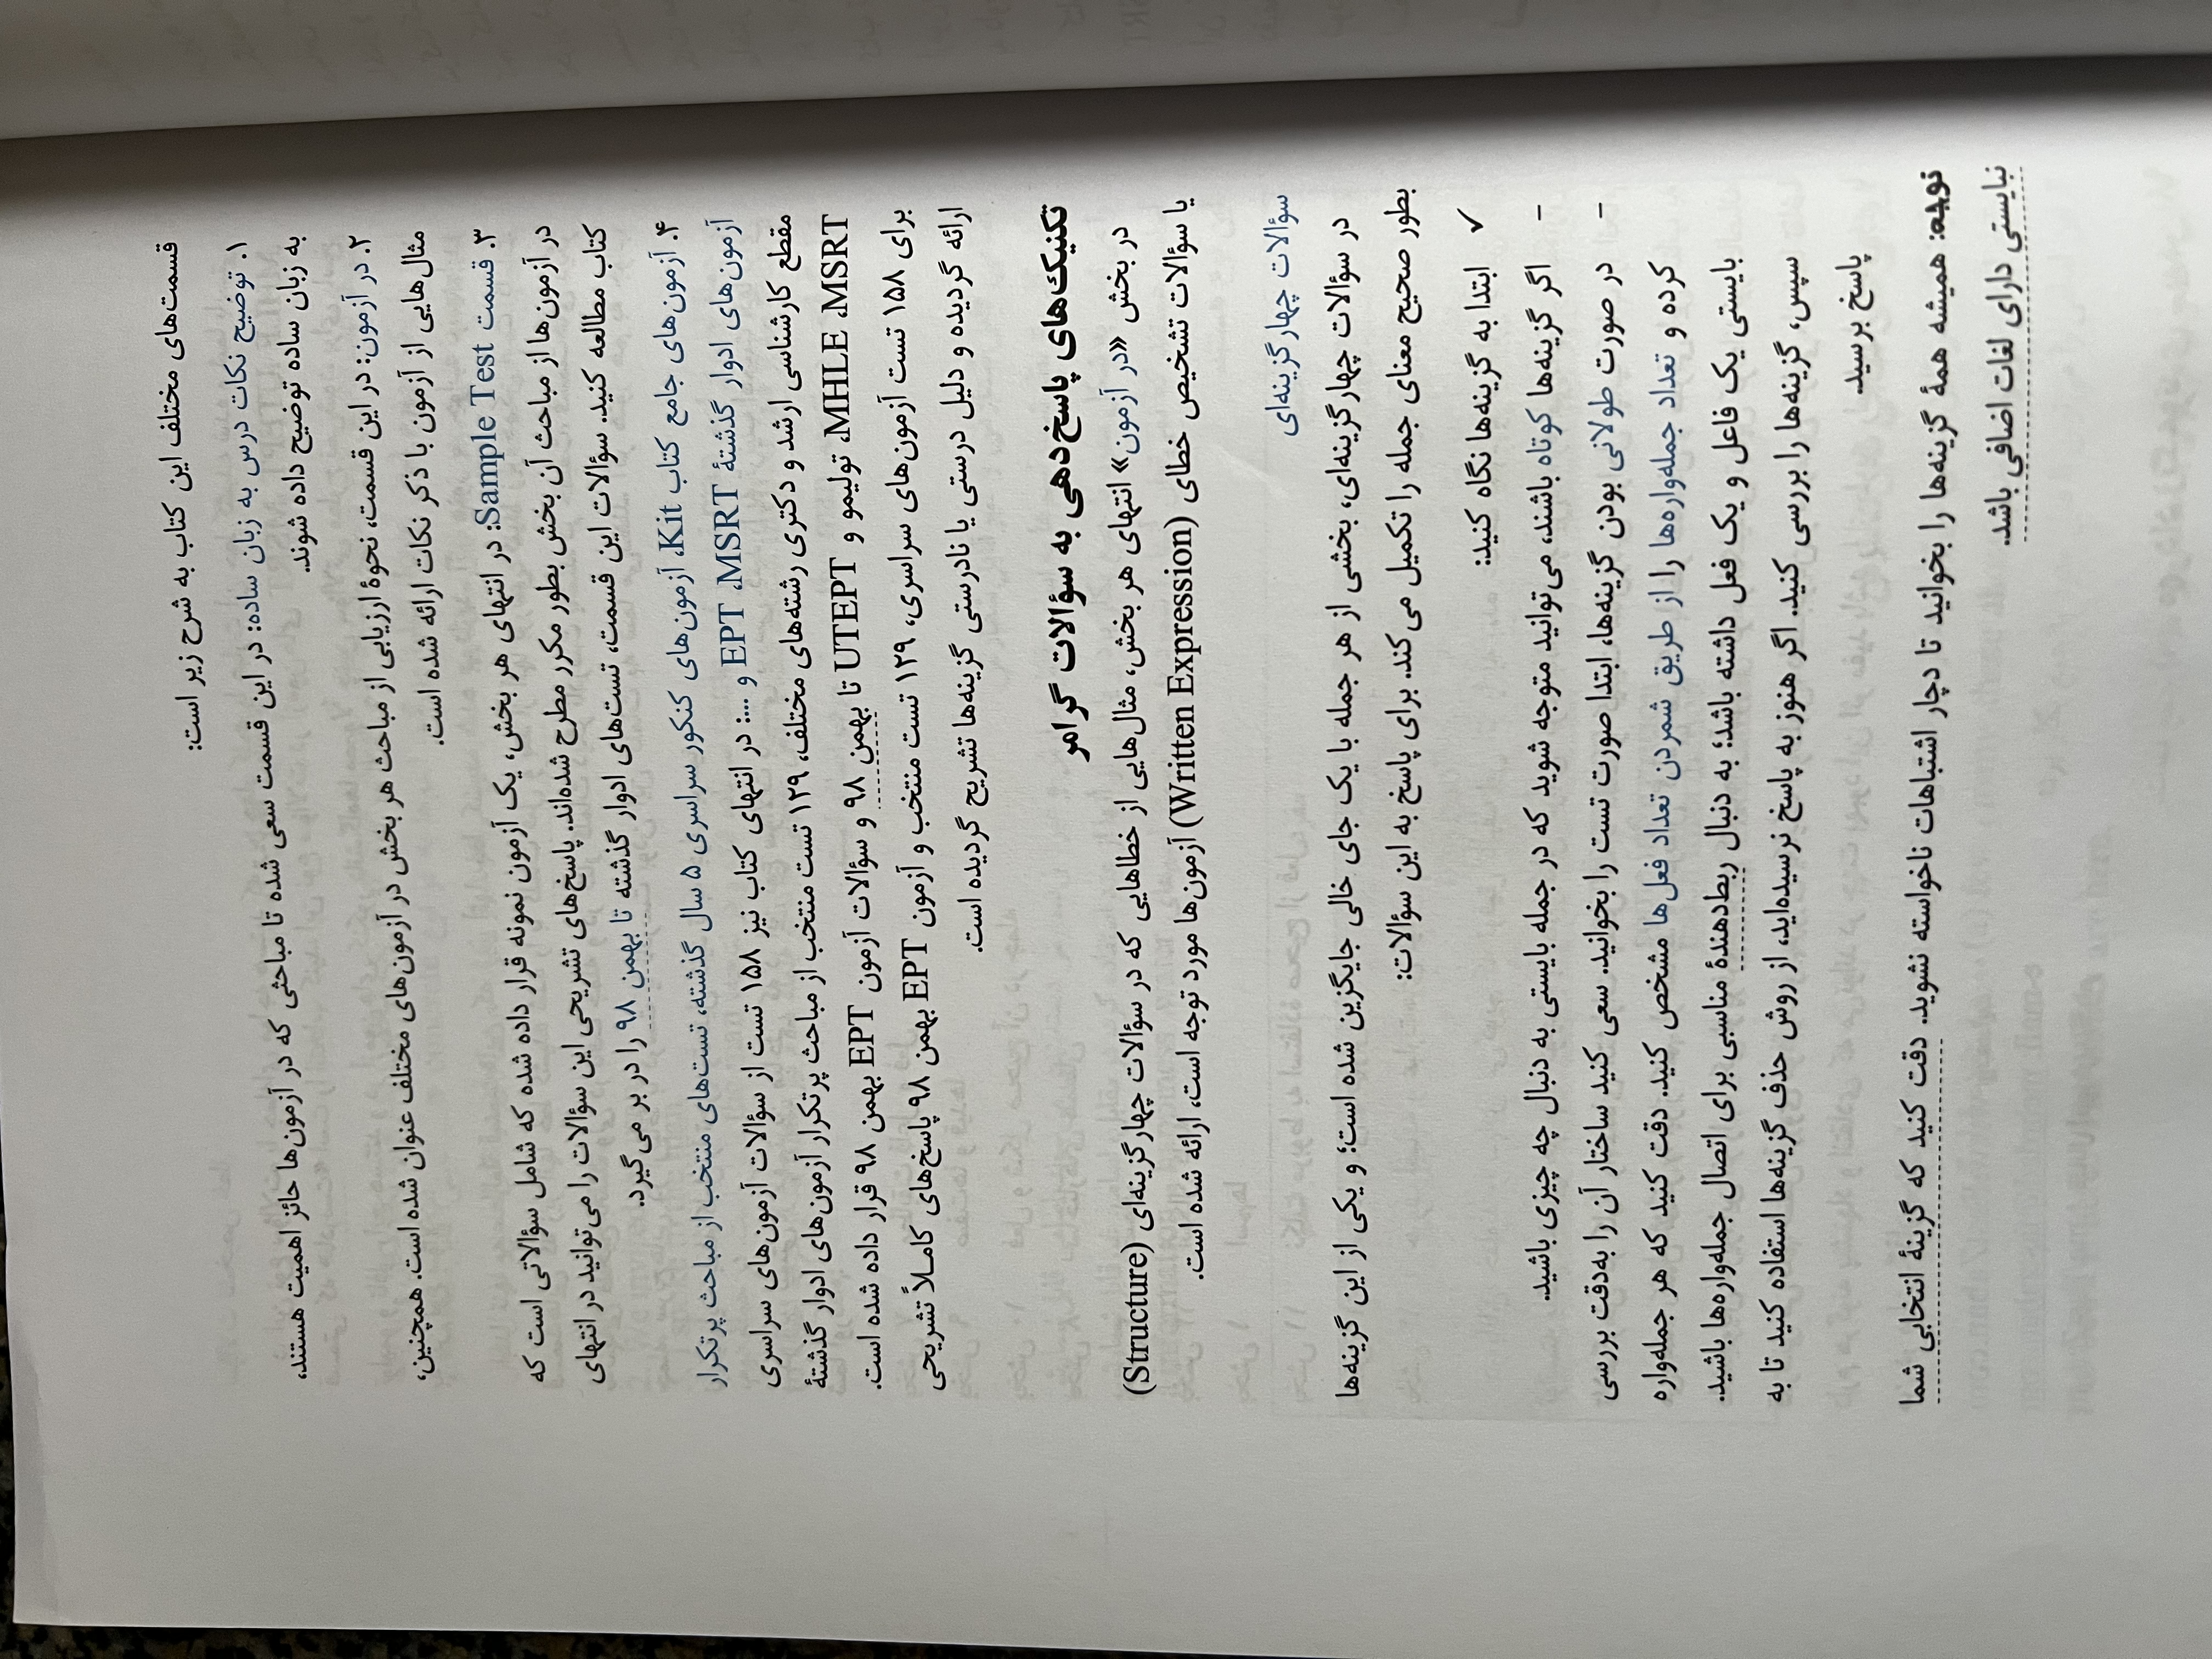 قسمت‌های مختلف این کتاب به شرح زیر است:
۱. توضیح نکات درس به زبان ساده: در این قسمت سعی شده تا مباحثی که در آزمون‌ها حائز اهمیت هستند،
به زبان ساده توضیح داده شوند.
۲. در آزمون: در این قسمت، نحوهٔ ارزیابی از مباحث هر بخش در آزمون‌های مختلف عنوان شده است. همچنین،
مثال‌هایی از آزمون با ذکر نکات ارائه شده است.
۳. قسمت Sample Test: در انتهای هر بخش، یک آزمون نمونه قرار داده شده که شامل سؤالاتی است که
در آزمون‌ها از مباحث آن بخش بطور مکرر مطرح شده‌اند. پاسخ‌های تشریحی این سؤالات را می‌توانید در انتهای
کتاب مطالعه کنید. سؤالات این قسمت، تست‌های ادوار گذشته تا بهمن ۹۸ را در بر می‌گیرد.
۴. آزمون‌های جامع کتاب Kit، آزمون‌های کنکور سراسری ۵ سال گذشته، تست‌های منتخب از مباحث پرتکرار
آزمون‌های ادوار گذشتهٔ MSRT، EPT و ...: در انتهای کتاب نیز ۱۵۸ تست از سؤالات آزمون‌های سراسری
مقطع کارشناسی ارشد و دکتری رشته‌های مختلف، ۱۲۹ تست منتخب از مباحث پرتکرار آزمون‌های ادوار گذشتهٔ
MSRT، MHLE، تولیمو و UTEPT تا بهمن ۹۸ و سؤالات آزمون EPT بهمن ۹۸ قرار داده شده است.
برای ۱۵۸ تست آزمون‌های سراسری، ۱۲۹ تست منتخب و آزمون EPT بهمن ۹۸ پاسخ‌های کاملاً تشریحی
ارائه گردیده و دلیل درستی یا نادرستی گزینه‌ها تشریح گردیده است.
تکنیک‌های پاسخ‌دهی به سؤالات گرامر
در بخش «در آزمون» انتهای هر بخش، مثال‌هایی از خطاهایی که در سؤالات چهارگزینه‌ای (Structure)
یا سؤالات تشخیص خطای (Written Expression) آزمون‌ها مورد توجه است، ارائه شده است.
سؤالات چهارگزینه‌ای
در سؤالات چهارگزینه‌ای، بخشی از هر جمله با یک جای خالی جایگزین شده است؛ و یکی از این گزینه‌ها
بطور صحیح معنای جمله را تکمیل می‌کند. برای پاسخ به این سؤالات:
✓ ابتدا به گزینه‌ها نگاه کنید:
- اگر گزینه‌ها کوتاه باشند، می‌توانید متوجه شوید که در جمله بایستی به دنبال چه چیزی باشید.
- در صورت طولانی بودن گزینه‌ها، ابتدا صورت تست را بخوانید. سعی کنید ساختار آن را به‌دقت بررسی
کرده و تعداد جمله‌واره‌ها را از طریق شمردن تعداد فعل‌ها مشخص کنید. دقت کنید که هر جمله‌واره
بایستی یک فاعل و یک فعل داشته باشد؛ به دنبال ربط‌دهندهٔ مناسبی برای اتصال جمله‌واره‌ها باشید.
سپس، گزینه‌ها را بررسی کنید. اگر هنوز به پاسخ نرسیده‌اید، از روش حذف گزینه‌ها استفاده کنید تا به
پاسخ برسید.
توجه: همیشه همهٔ گزینه‌ها را بخوانید تا دچار اشتباهات ناخواسته نشوید. دقت کنید که گزینهٔ انتخابی شما
نبایستی دارای لغات اضافی باشد.